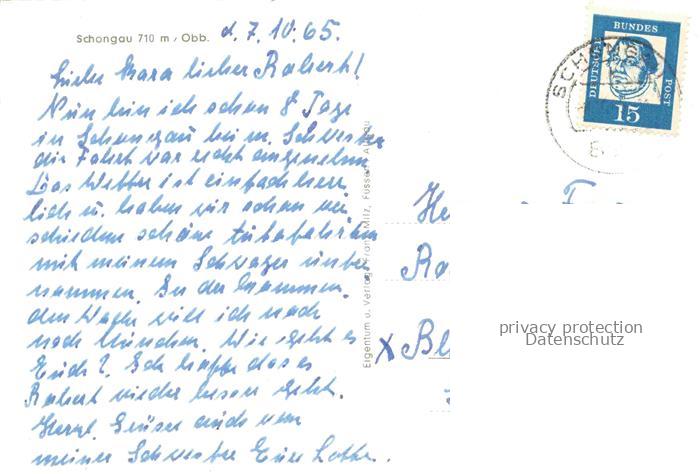 Schongau 710 m, Obb. d. 7. 10. 65.
Liebe Mara lieber Robert!
Nun bin ich schon 8 Tage
in Schongau bei m. Schwester
die Fahrt war recht angenehm
Das Wetter ist einfach herr
lich u. haben wir schon ver
schiedene schöne Autofahrten
mit meinem Schwager unter
nommen. In der kommen
den Woche will ich nach
noch München. Wie geht es
Euch? Ich hoffe das es
Robert wieder besser geht.
Herzl. Grüsse auch von
meiner Schwester Eure Lotte.
Eigentum u. Verlag Franz Milz, Füssen, Allgäu
DEUTSCHE BUNDESPOST
15
SCHONGAU
He
Ro
x Bl
privacy protection
Datenschutz